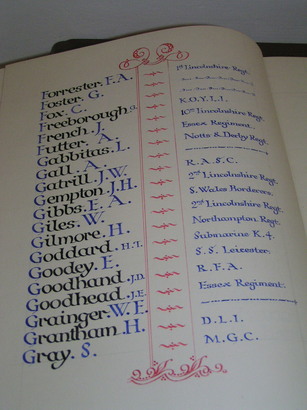 Forrester. F.A. 1st Lincolnshire Regt.
Foster. G.
Fox. C.
Freeborough. G. K.O.Y.L.I.
French. J. 10th Lincolnshire Regt.
Futter. A. Essex Regiment.
Gabbitas. L. Notts & Derby Regt.
Gall. A.
Gatrill. J.W. R.A.S.C.
Gempton. J.H. 2nd Lincolnshire Regt.
Gibbs. E. A. S. Wales Borderers.
Giles. W. 2nd Lincolnshire Regt.
Gilmore. H. Northampton. Regt.
Goddard. H.T. Submarine K.4.
Goodey. E. S.S. Leicester.
Goodhand. J.D. R.F.A.
Goodhead. J.E. Essex Regiment.
Grainger. W.E.
Grantham. H. D.L.I.
Gray. S. M.G.C.